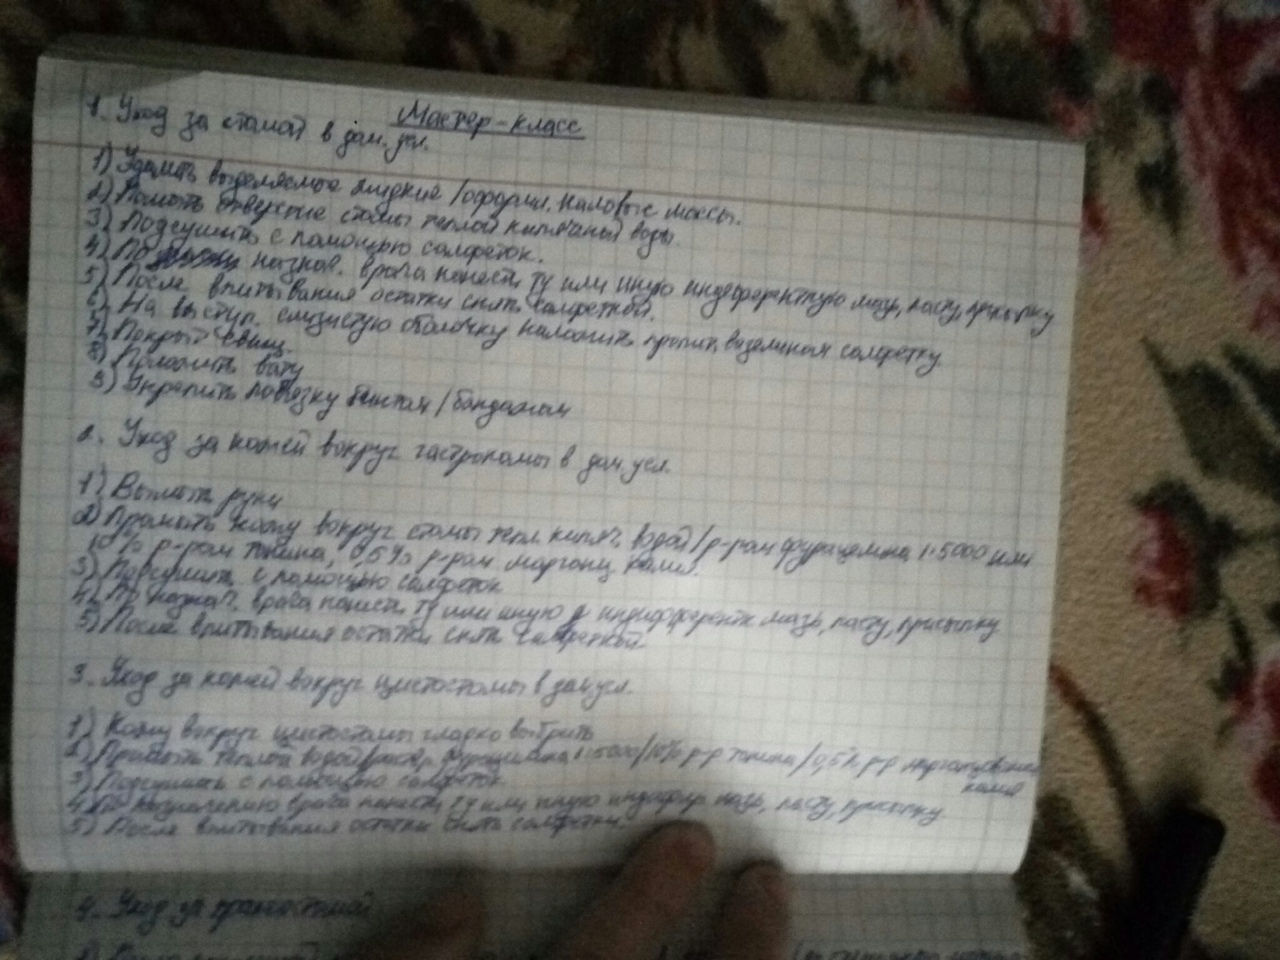 Мастер-класс
1. Уход за стомой в дом. усл.
1) Удалить выделяемые жидкие / оформл. каловые массы.
2) Помыть отверстие стомы теплой кипячёной воды.
3) Подсушить с помощью салфеток.
4) По назнач. врача нанести ту или иную индифферентную мазь, пасту, присыпку
5) После впитывания остатки снять салфеткой.
6) На выступ. слизистую оболочку наложить пропит. вазелином салфетку.
7) Покрыть
8) Положить вату
9) Укрепить повязку бинтом / бандажом
2. Уход за кожей вокруг гастростомы в дом. усл.
1) Вымыть руки
2) Промыть кожу вокруг стомы тепл. кипяч. водой / р-ром фурацилина 1:5000 или
10% р-ром танина, 0,5% р-ром марганц. калия.
3) Подсушить с помощью салфеток
4) По назнач. врача нанести ту или иную индифферентн. мазь, пасту, присыпку
5) После впитывания остатки снять салфеткой
3. Уход за кожей вокруг цистостомы в дом. усл.
1) Кожу вокруг цистостомы гладко выбрить
2) Промыть теплой водой / раств. фурацилина 1:5000 / 10% р-р танина / 0,5% р-р
калия
3) Подсушить с помощью салфеток
4) По назначению врача нанести ту или иную индифер. мазь, пасту, присыпку
5) После впитывания остатки снять
4. Уход за